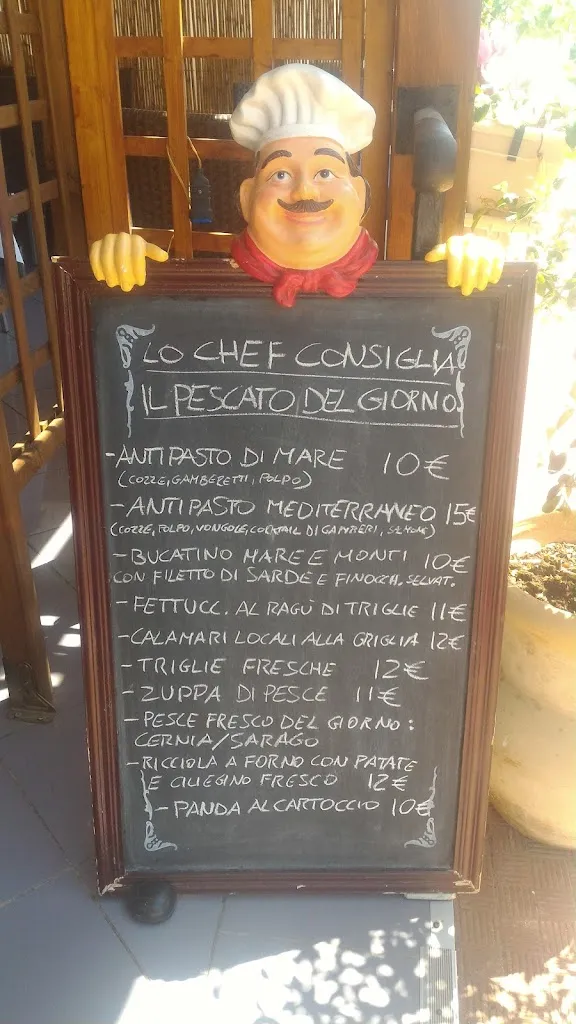 LO CHEF CONSIGLIA
IL PESCATO DEL GIORNO
-ANTIPASTO DI MARE 10€
(COZZE, GAMBERETTI, POLPO)
-ANTIPASTO MEDITERRANEO 15€
(COZZE, POLPO, VONGOLE, COCKTAIL DI GAMBERI, SALMONE)
-BUCATINO MARE E MONTI 10€
CON FILETTO DI SARDE E FINOCCH. SELVAT.
-FETTUCC. AL RAGÙ DI TRIGLIE 11€
-CALAMARI LOCALI ALLA GRIGLIA 12€
-TRIGLIE FRESCHE 12€
-ZUPPA DI PESCE 11€
-PESCE FRESCO DEL GIORNO:
CERNIA/SARAGO
-RICCIOLA A FORNO CON PATATE
E CILIEGINO FRESCO 12€
-PANDA AL CARTOCCIO 10€